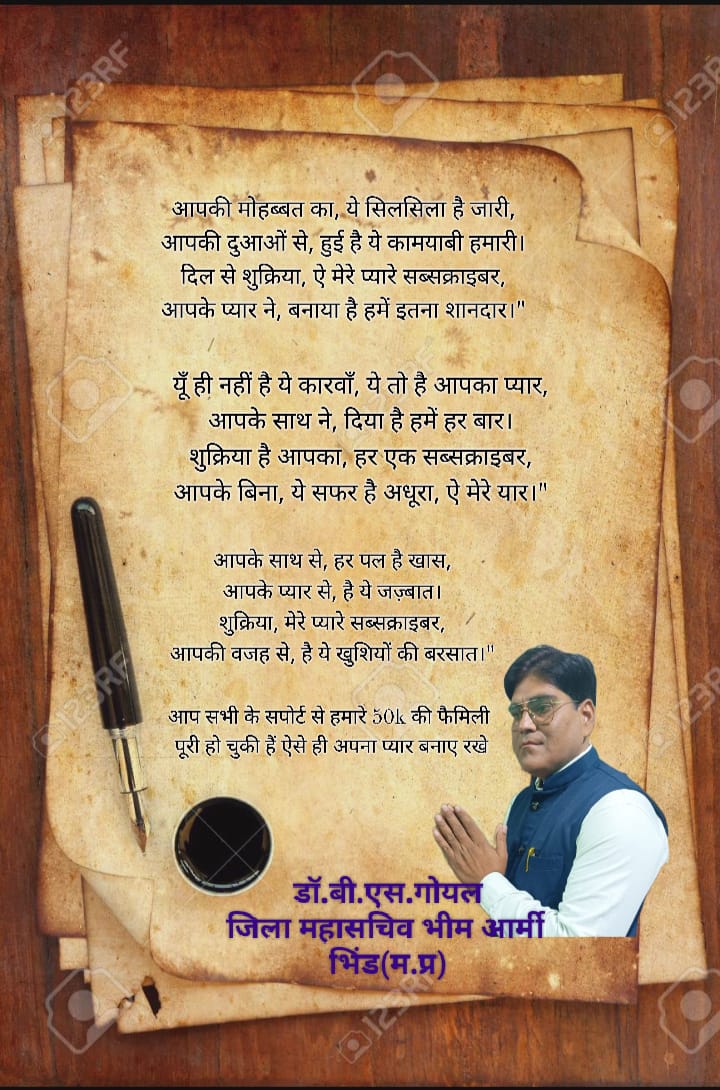 आपकी मोहब्बत का, ये सिलसिला है जारी,
आपकी दुआओं से, हुई है ये कामयाबी हमारी।
दिल से शुक्रिया, ऐ मेरे प्यारे सब्सक्राइबर,
आपके प्यार ने, बनाया है हमें इतना शानदार।"
यूँ ही नहीं है ये कारवाँ, ये तो है आपका प्यार,
आपके साथ ने, दिया है हमें हर बार।
शुक्रिया है आपका, हर एक सब्सक्राइबर,
आपके बिना, ये सफर है अधूरा, ऐ मेरे यार।"
आपके साथ से, हर पल है खास,
आपके प्यार से, है ये जज़्बात।
शुक्रिया, मेरे प्यारे सब्सक्राइबर,
आपकी वजह से, है ये खुशियों की बरसात।"
आप सभी के सपोर्ट से हमारे 50k की फैमिली
पूरी हो चुकी हैं ऐसे ही अपना प्यार बनाए रखे
डॉ.बी.एस.गोयल
जिला महासचिव भीम आर्मी
भिंड(म.प्र)
123RF
123RF
123RF
123RF
123RF
123RF